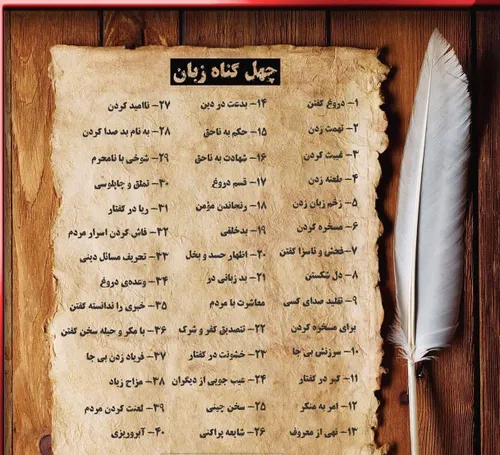 چهل گناه زبان
۱- دروغ گفتن
۲- تهمت زدن
۳- غیبت کردن
۴- طعنه زدن
۵- زخم زبان زدن
۶- مسخره کردن
۷- فحش و ناسزا گفتن
۸- دل شکستن
۹- تقلید صدای کسی
برای مسخره کردن
۱۰- سرزنش بی جا
۱۱- کبر در گفتار
۱۲- امر به منکر
۱۳- نهی از معروف
۱۴- بدعت در دین
۱۵- حکم به ناحق
۱۶- شهادت به ناحق
۱۷- قسم دروغ
۱۸- رنجاندن مؤمن
۱۹- بدخلقی
۲۰- اظهار حسد و بخل
۲۱- بد زبانی در
معاشرت با مردم
۲۲- تصدیق کفر و شرک
۲۳- خشونت در گفتار
۲۴- عیب جویی از دیگران
۲۵- سخن چینی
۲۶- شایعه پراکنی
۲۷- ناامید کردن
۲۸- به نام بد صدا کردن
۲۹- شوخی با نامحرم
۳۰- تملق و چاپلوسی
۳۱- ریا در گفتار
۳۲- فاش کردن اسرار مردم
۳۳- تحریف مسائل دینی
۳۴- وعده‌ی دروغ
۳۵- خبری را ندانسته گفتن
۳۶- با مکر و حیله سخن گفتن
۳۷- فریاد زدن بی جا
۳۸- مزاح زیاد
۳۹- لعنت کردن مردم
۴۰- آبروریزی